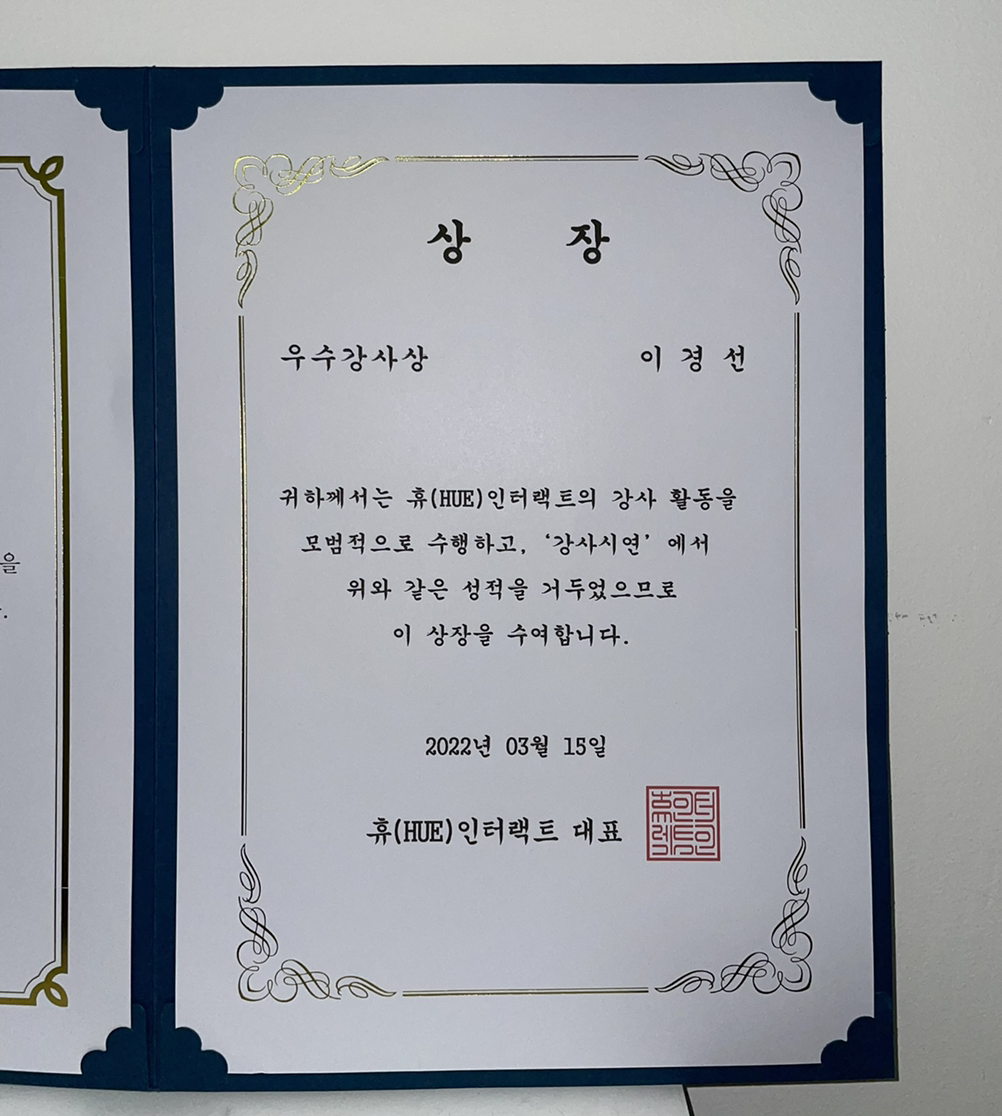 상 장
우수강사상 이 경 선
귀하께서는 휴(HUE)인터랙트의 강사 활동을
모범적으로 수행하고, ‘강사시연’ 에서
위와 같은 성적을 거두었으므로
이 상장을 수여합니다.
2022년 03월 15일
휴(HUE)인터랙트 대표
을